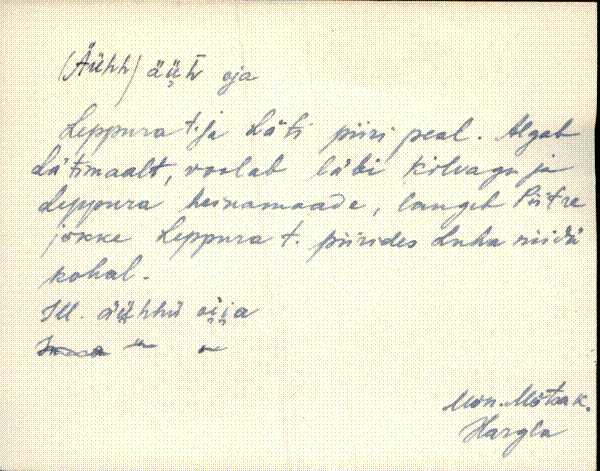 (Äühh) äü̬h oja
Leppura t. ja Läti piiri peal. Algab
Lätimaalt, voolab läbi kõlvagu ja
Leppura heinamaade, langeb Piitre
jõkke Leppura t. piirides Luha niidü
kohal.
Ill. äü̬hhü oi̬j̬a
Mõn. Mõtsa k.
Hargla